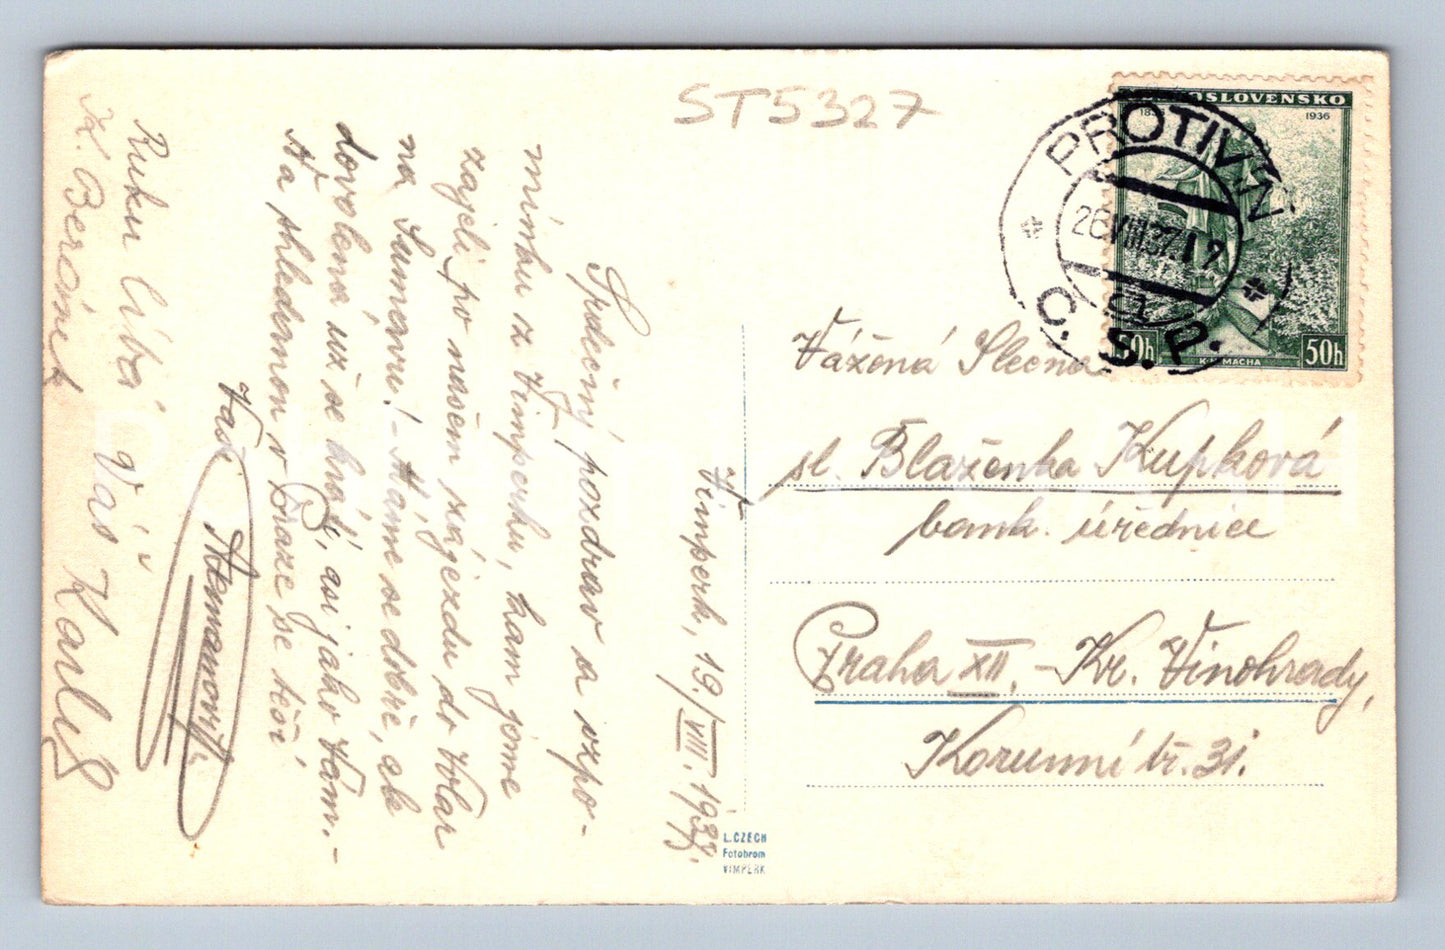 ST5327
ČESKOSLOVENSKO
1936
50h
50h
K.H.MÁCHA
PROTIVÍN
26.VIII.37.12
Č.S.P.
Vážená Slečna
sl. Blaženka Kupková
bank. úřednice
Praha XII. - Kr. Vinohrady,
Korunní tř. 31.
Vimperk, 19./VIII. 1937.
Srdečný pozdrav a vzpo-
mínku z Vimperku, kam jsme
zajeli po našem zájezdu do Volar
na Šumavu! - Máme se dobře, ale
dovolená už se krátí, asi jako Vám. -
Na shledanou v Praze se těší
Vaši
Ruku líbá Váš Karel
K. Beránek
L. CZECH
Fotobrom
VIMPERK